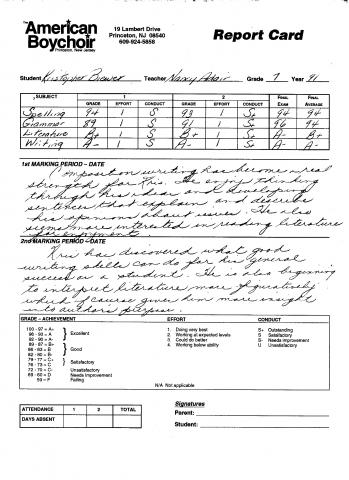 The American Boychoir
Princeton, New Jersey
19 Lambert Drive
Princeton, NJ 08540
609-924-5858
Report Card
Student Kristopher Brewer Teacher Nancy Adair Grade 7 Year 91
SUBJECT 1 2 FINAL EXAM FINAL AVERAGE
GRADE EFFORT CONDUCT GRADE EFFORT CONDUCT
Spelling 94 1 S 93 1 S+ 94 94
Grammar 89 1 S 91 1 S+ 94
Literature B+ 1 S B+ 1 S+ A- B+
Writing A- 1 S A- 1 S+ A- A-
1st MARKING PERIOD - DATE
Composition writing has become a real
strength for Kris. He enjoys thinking
through his ideas and developing
sentences that explain and describe
his opinions about issues. He also
seems more interested in reading literature
for enjoyment.
2nd MARKING PERIOD - DATE
Kris has discovered what good
writing skills can do for his general
success as a student. He is also beginning
to interpret literature more figuratively
which of course gives him more insight
into authors' purpose.
GRADE - ACHIEVEMENT EFFORT CONDUCT
100 - 97 = A+
96 - 93 = A Excellent
92 - 90 = A-
89 - 87 = B+
86 - 83 = B Good
82 - 80 = B-
79 - 77 = C+
76 - 73 = C Satisfactory
72 - 70 = C- Unsatisfactory
69 - 60 = D Needs Improvement
59 = F Failing
1. Doing very best
2. Working at expected levels
3. Could do better
4. Working below ability
S+ Outstanding
S Satisfactory
N Needs Improvement
U Unsatisfactory
N/A Not applicable
ATTENDANCE 1 2 TOTAL
DAYS ABSENT
Signatures
Parent:
Student: